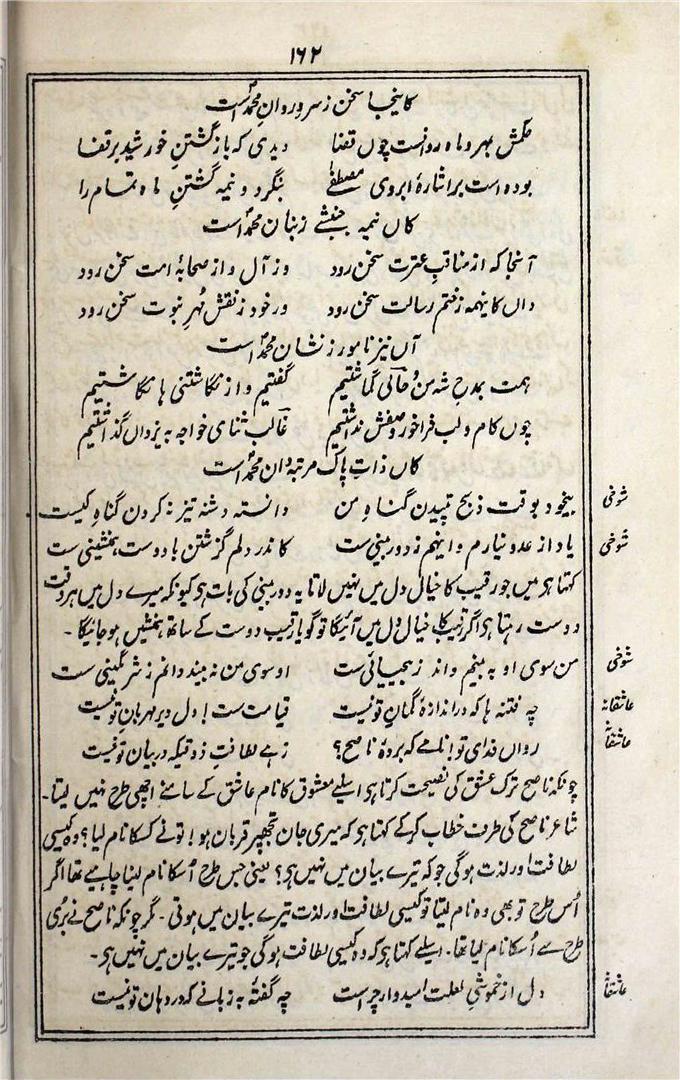 ۱۶۲
کاینجا سخن ز سرو روانِ محمدؐ است
حکمش بمہر و ماہ روانست چوں قضا دیدی کہ باز گشتنِ خورشید بر قفا
بودہ است بر اشارۂ ابروی مصطفےٰؐ بنگر دو نیمہ گشتنِ ماہ تمام را
کاں نیمہ جنبشے ز بنانِ محمدؐ است
آنجا کہ از مناقبِ عترت سخن رود وز آل و از صحابۂ امت سخن رود
داں کاینہمہ ز ختم رسالت سخن رود ور خود ز نقش مُہرِ نبوت سخن رود
آں نیز نامور ز نشانِ محمدؐ است
ہمت بمدحِ شہ من و حالی گماشتیم گفتیم و از نگاشتنی ہا نگاشتیم
چوں کام و لب فراخور وصفش نداشتیم غالب ثنای خواجہ بہ یزداں گذاشتیم
کاں ذاتِ پاک مرتبہ دانِ محمدؐ است
بیخود بوقت ذبح تپیدن گناہِ من دانستہ دشنہ تیز نہ کردن گناہِ کیست شوخی
یاد از عدو نیارم و اینہم ز دور بینی ست کاندر دلم گزشتن با دوست ہمنشینی ست شوخی
کہتا ہو میں جو رقیب کا خیال دل میں نہیں لاتا یہ دور بینی کی بات ہو کیونکہ میرے دل میں ہر وقت
دوست رہتا ہو اگر رقیب کا خیال دل میں آئیگا تو گویا رقیب دوست کے ساتھ ہمنشیں ہو جائیگا۔
من سوی او بہ بینم داند ز بیحیائی ست او سوی من نہ بیند دانم ز شرمگینی ست شوخی
چہ فتنہ ہا کہ در اندازۂ گمانِ تو نیست قیامت ست دل دیر مہربانِ تو نیست عاشقانہ
رواں فدای تو نامِ کہ بردۂ ناصح؟ زہے لطافتِ ذوقیکہ در بیان تو نیست عاشقانہ
چونکہ ناصح ترکِ عشق کی نصیحت کرتا ہو اسلیے معشوق کا نام عاشق کے سامنے اچھی طرح نہیں لیتا۔
شاعر ناصح کی طرف خطاب کر کے کہتا ہو کہ میری جان تجھپر قربان ہو! تو نے کسکا نام لیا؟ وہ کیسی
لطافت اور لذت ہوگی جو کہ تیرے بیان میں نہیں ہو؟ یعنی جس طرح اُسکا نام لینا چاہیے تھا اگر
اُس طرح تو بھی وہ نام لیتا تو کیسی لطافت اور لذت تیرے بیان میں ہوتی۔ مگر چونکہ ناصح نے بُری
طرح سے اُسکا نام لیا تھا۔ اسلیے کہتا ہو کہ وہ کیسی لطافت ہوگی جو تیرے بیان میں نہیں ہو۔
دل از خموشیِ لعلت امیدوار چراست چہ گفتۂ بہ زبانے کہ در دہانِ تو نیست عاشقانہ